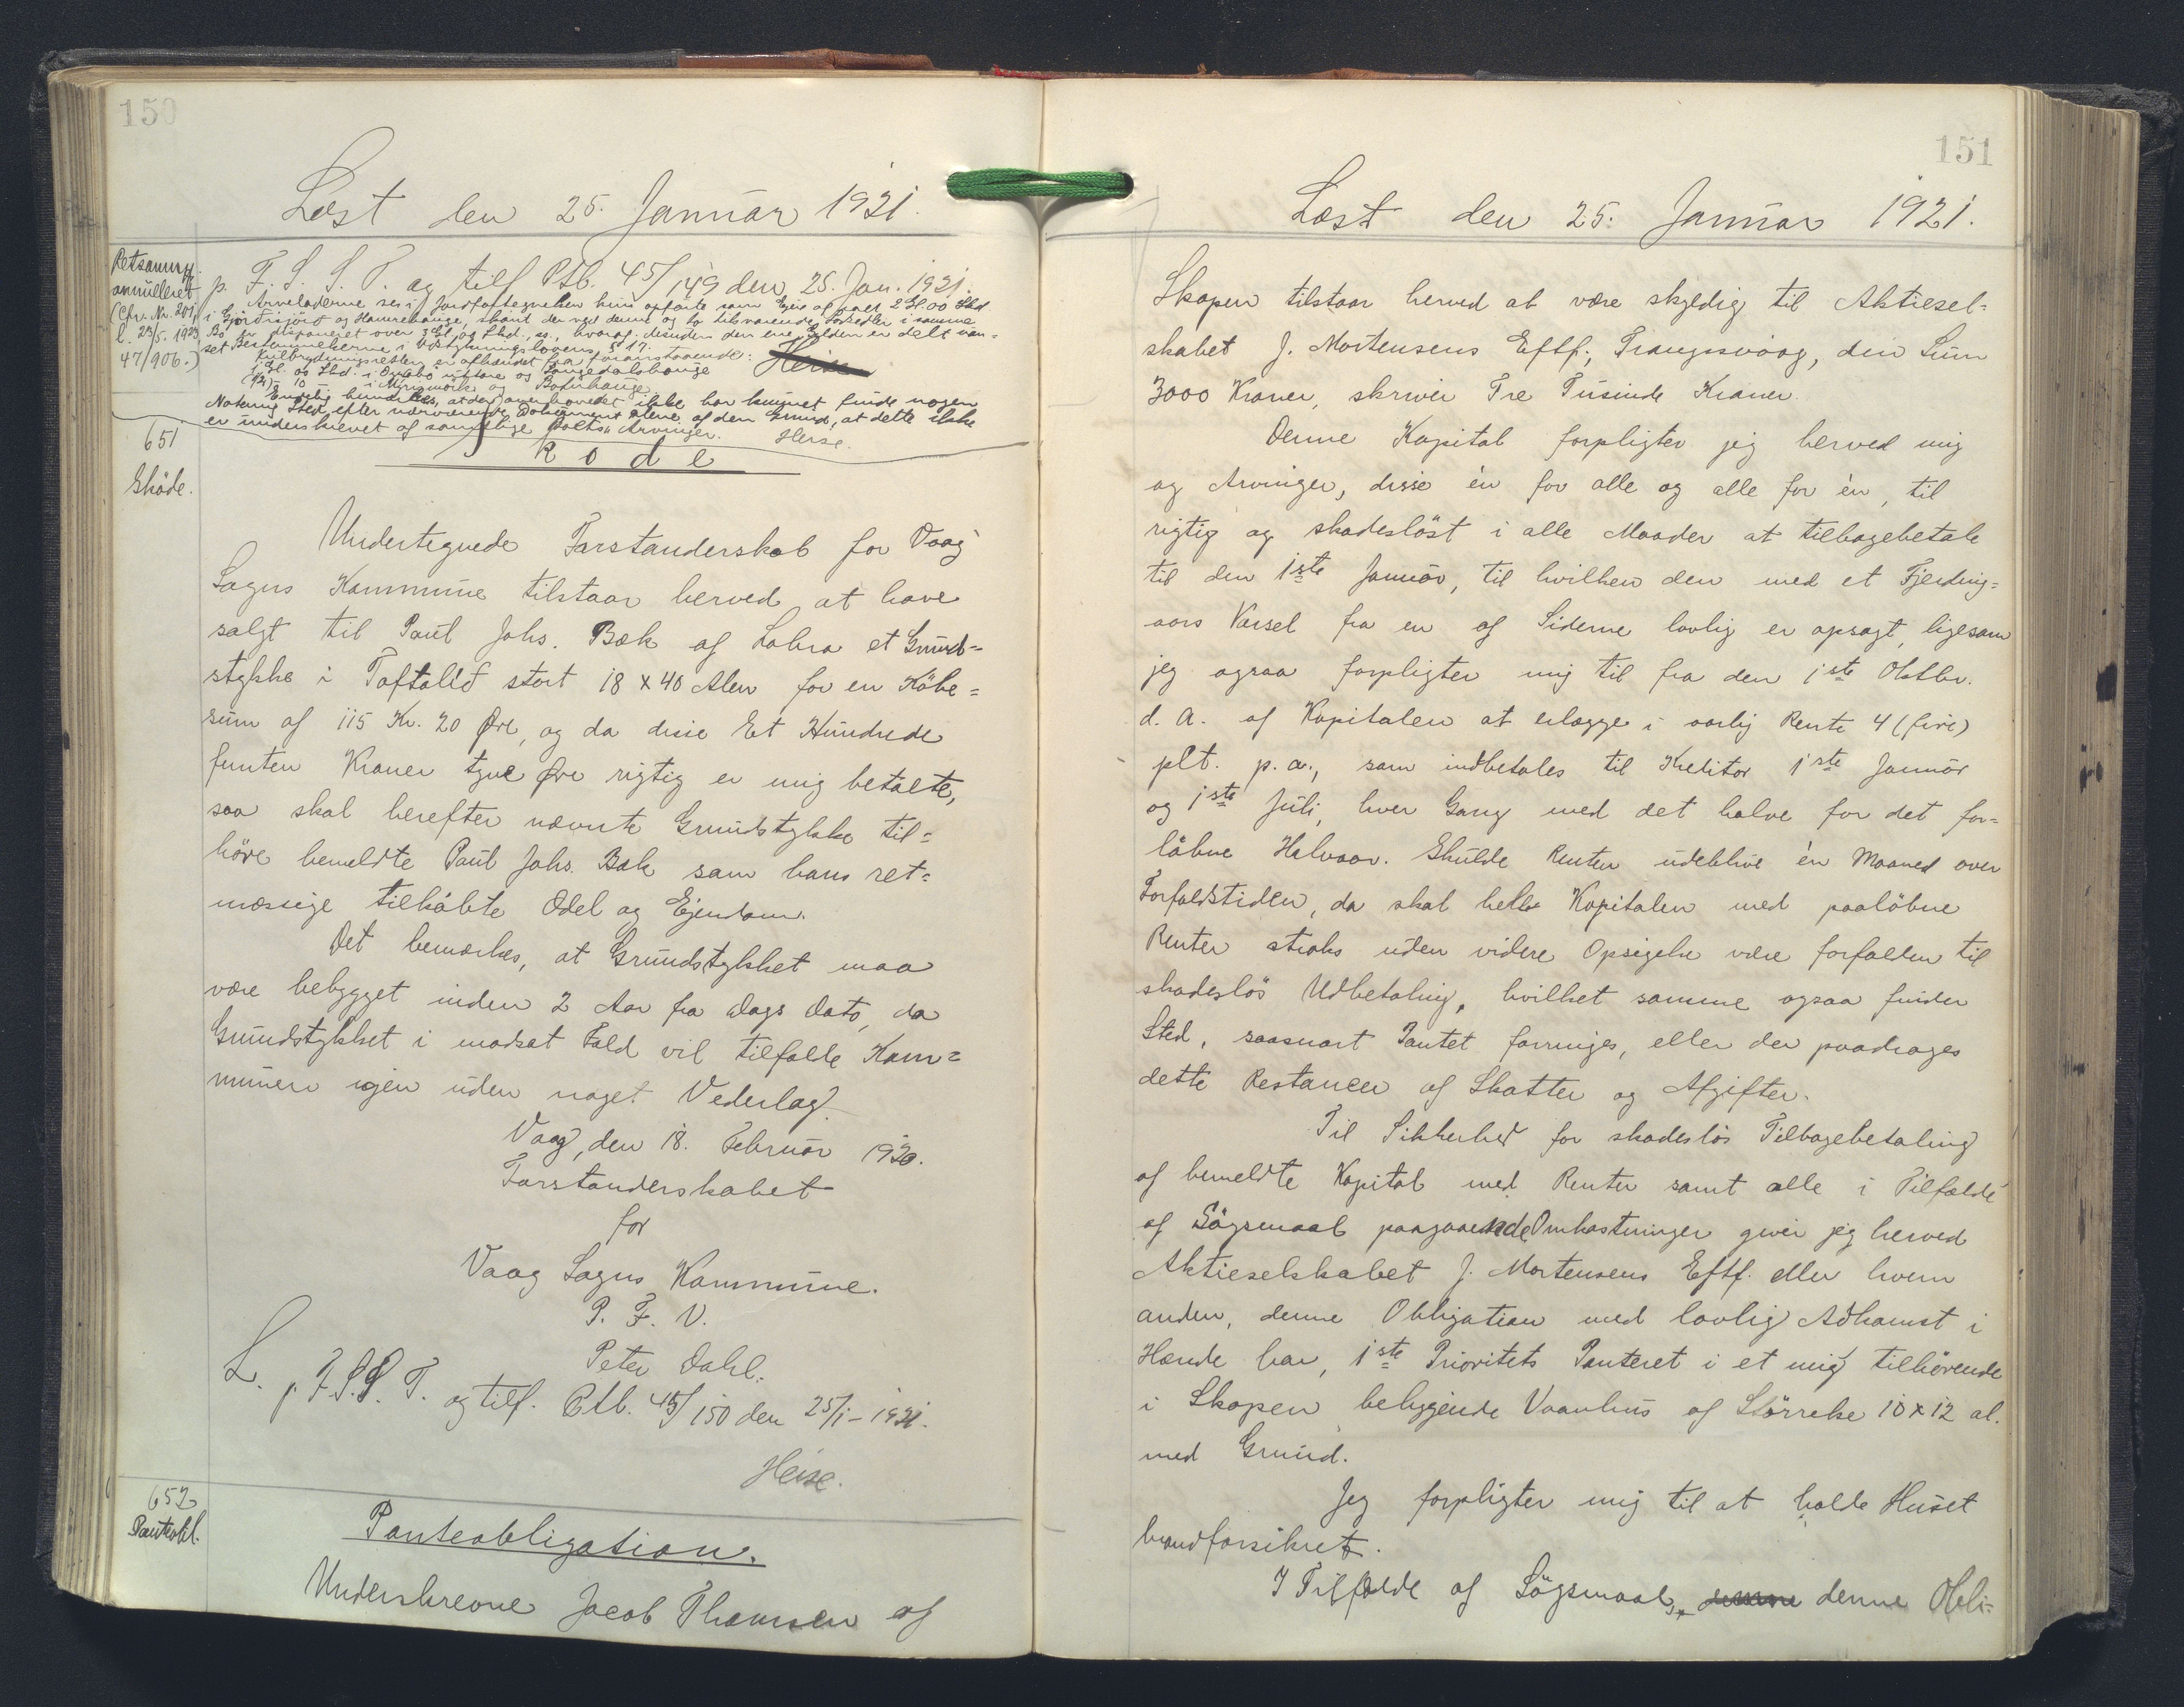 150
Læst den 25. Januar 1921.
p. F. S. S. T. og tilf. Ptb. 45/149 den 25. Jan. 1921.
Retsanm.
annulleret
(Cfr. Nr. 201
l. 23/5. 1923
47/906.)
Arveladerne ses i Jordfortegnelsen kun opførte som Ejer af 2 Gl 00 Skd
i og Hamrehauge, skønt der ved denne og to tilsvarende Fortegnelser i samme
Bo er disponeret over 3 Gl. og Skd., hvoraf desuden den ene Gylden er delt uan-
set Bestemmelserne i Udstykningslovens § 17.
er afhændet fra foranstaaende: Heise
Gl. og Skd. i og
10 i og
Endelig bemærkes, at der overhovedet ikke har kunnet finde nogen
Notering Sted efter nærværende Dokument alene af den Grund, at dette ikke
er underskrevet af samtlige Arvinger. Heise.
651
Skøde.
Skøde
Undertegnede Forstanderskab for Vaag
Sogns Kommune tilstaar herved at have
solgt til Paul Johs. Bæk af Lobra et Grund-
stykke i Toftalid stort 18 x 40 Alen for en Købe-
sum af 115 Kr. 20 Øre, og da disse Et Hundrede
femten Kroner tyve Øre rigtig er mig betalte,
saa skal herefter nævnte Grundstykke til-
høre bemeldte Paul Johs. Bæk som hans ret-
mæssige tilkøbte Odel og Ejendom.
Det bemærkes, at Grundstykket maa
være bebygget inden 2 Aar fra Dags Dato, da
Grundstykket i modsat Fald vil tilfalde Kom-
munen igen uden noget Vederlag.
Vaag, den 18. Februar 1920.
Forstanderskabet
for
Vaag Sogns Kommune.
P. F. V.
Peter Dahl.
L. p. F. S. S. T. og tilf. Ptb. 45/150 den 25/1-1921.
Heise.
652
Panteobl.
Panteobligation.
Underskrevne Jacob Thomsen af
151
Læst den 25. Januar 1921.
Skopen tilstaar herved at være skyldig til Aktiesel-
skabet J. Mortensens Eftf., Trangisvaag, den Sum
3000 Kroner, skriver Tre Tusinde Kroner.
Denne Kapital forpligter jeg herved mig
og Arvinger, disse én for alle og alle for én, til
rigtig og skadesløst i alle Maader at tilbagebetale
til den 1ste Januar, til hvilken den med et Fjerding-
aars Varsel fra en af Siderne lovlig er opsagt, ligesom
jeg ogsaa forpligter mig til fra den 1ste Oktbr.
d. A. af Kapitalen at erlægge i aarlig Rente 4 (fire)
pCt. p. a., som indbetales til Kreditor 1ste Januar
og 1ste Juli, hver Gang med det halve for det for-
løbne Halvaar. Skulde Renten udeblive én Maaned over
Forfaldstiden, da skal hele Kapitalen med paaløbne
Renter straks uden videre Opsigelse være forfalden til
skadesløs Udbetaling, hvilket samme ogsaa finder
Sted, saasnart Pantet forringes, eller der paadrages
dette Restancer af Skatter og Afgifter.
Til Sikkerhed for skadesløs Tilbagebetaling
af bemeldte Kapital med Renter samt alle i Tilfælde
af Søgsmaal paagaaende Omkostninger giver jeg herved
Aktieselskabet J. Mortensens Eftf. eller hvem
anden, denne Obligation med lovlig Adkomst i
Hænde har, 1ste Prioritets Panteret i et mig tilhørende
i Skopen beliggende Vaanhus af Størrelse 10 x 12 al.
med Grund.
Jeg forpligter mig til at holde Huset
brandforsikret.
I Tilfælde af Søgsmaal denne Obli-